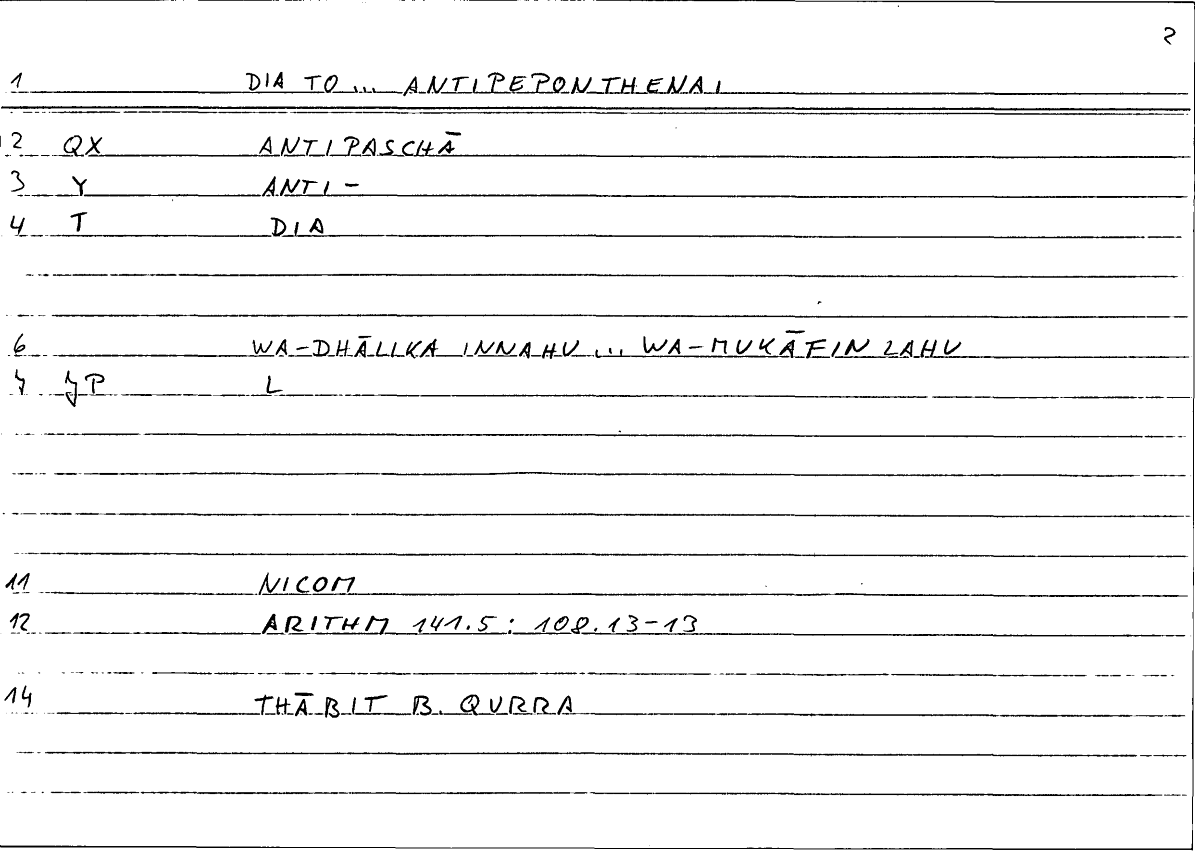 2
1 DIA TO ... ANTIPEPONTHENAI
2 QX ANTIPASCHĀ
3 Y ANTI-
4 T DIA
6 WA-DHĀLIKA INNAHU ... WA-MUKĀFIN LAHU
P L
11 NICOM
12 ARITHM 141.5 : 108.13-13
14 THĀBIT B. QURRA